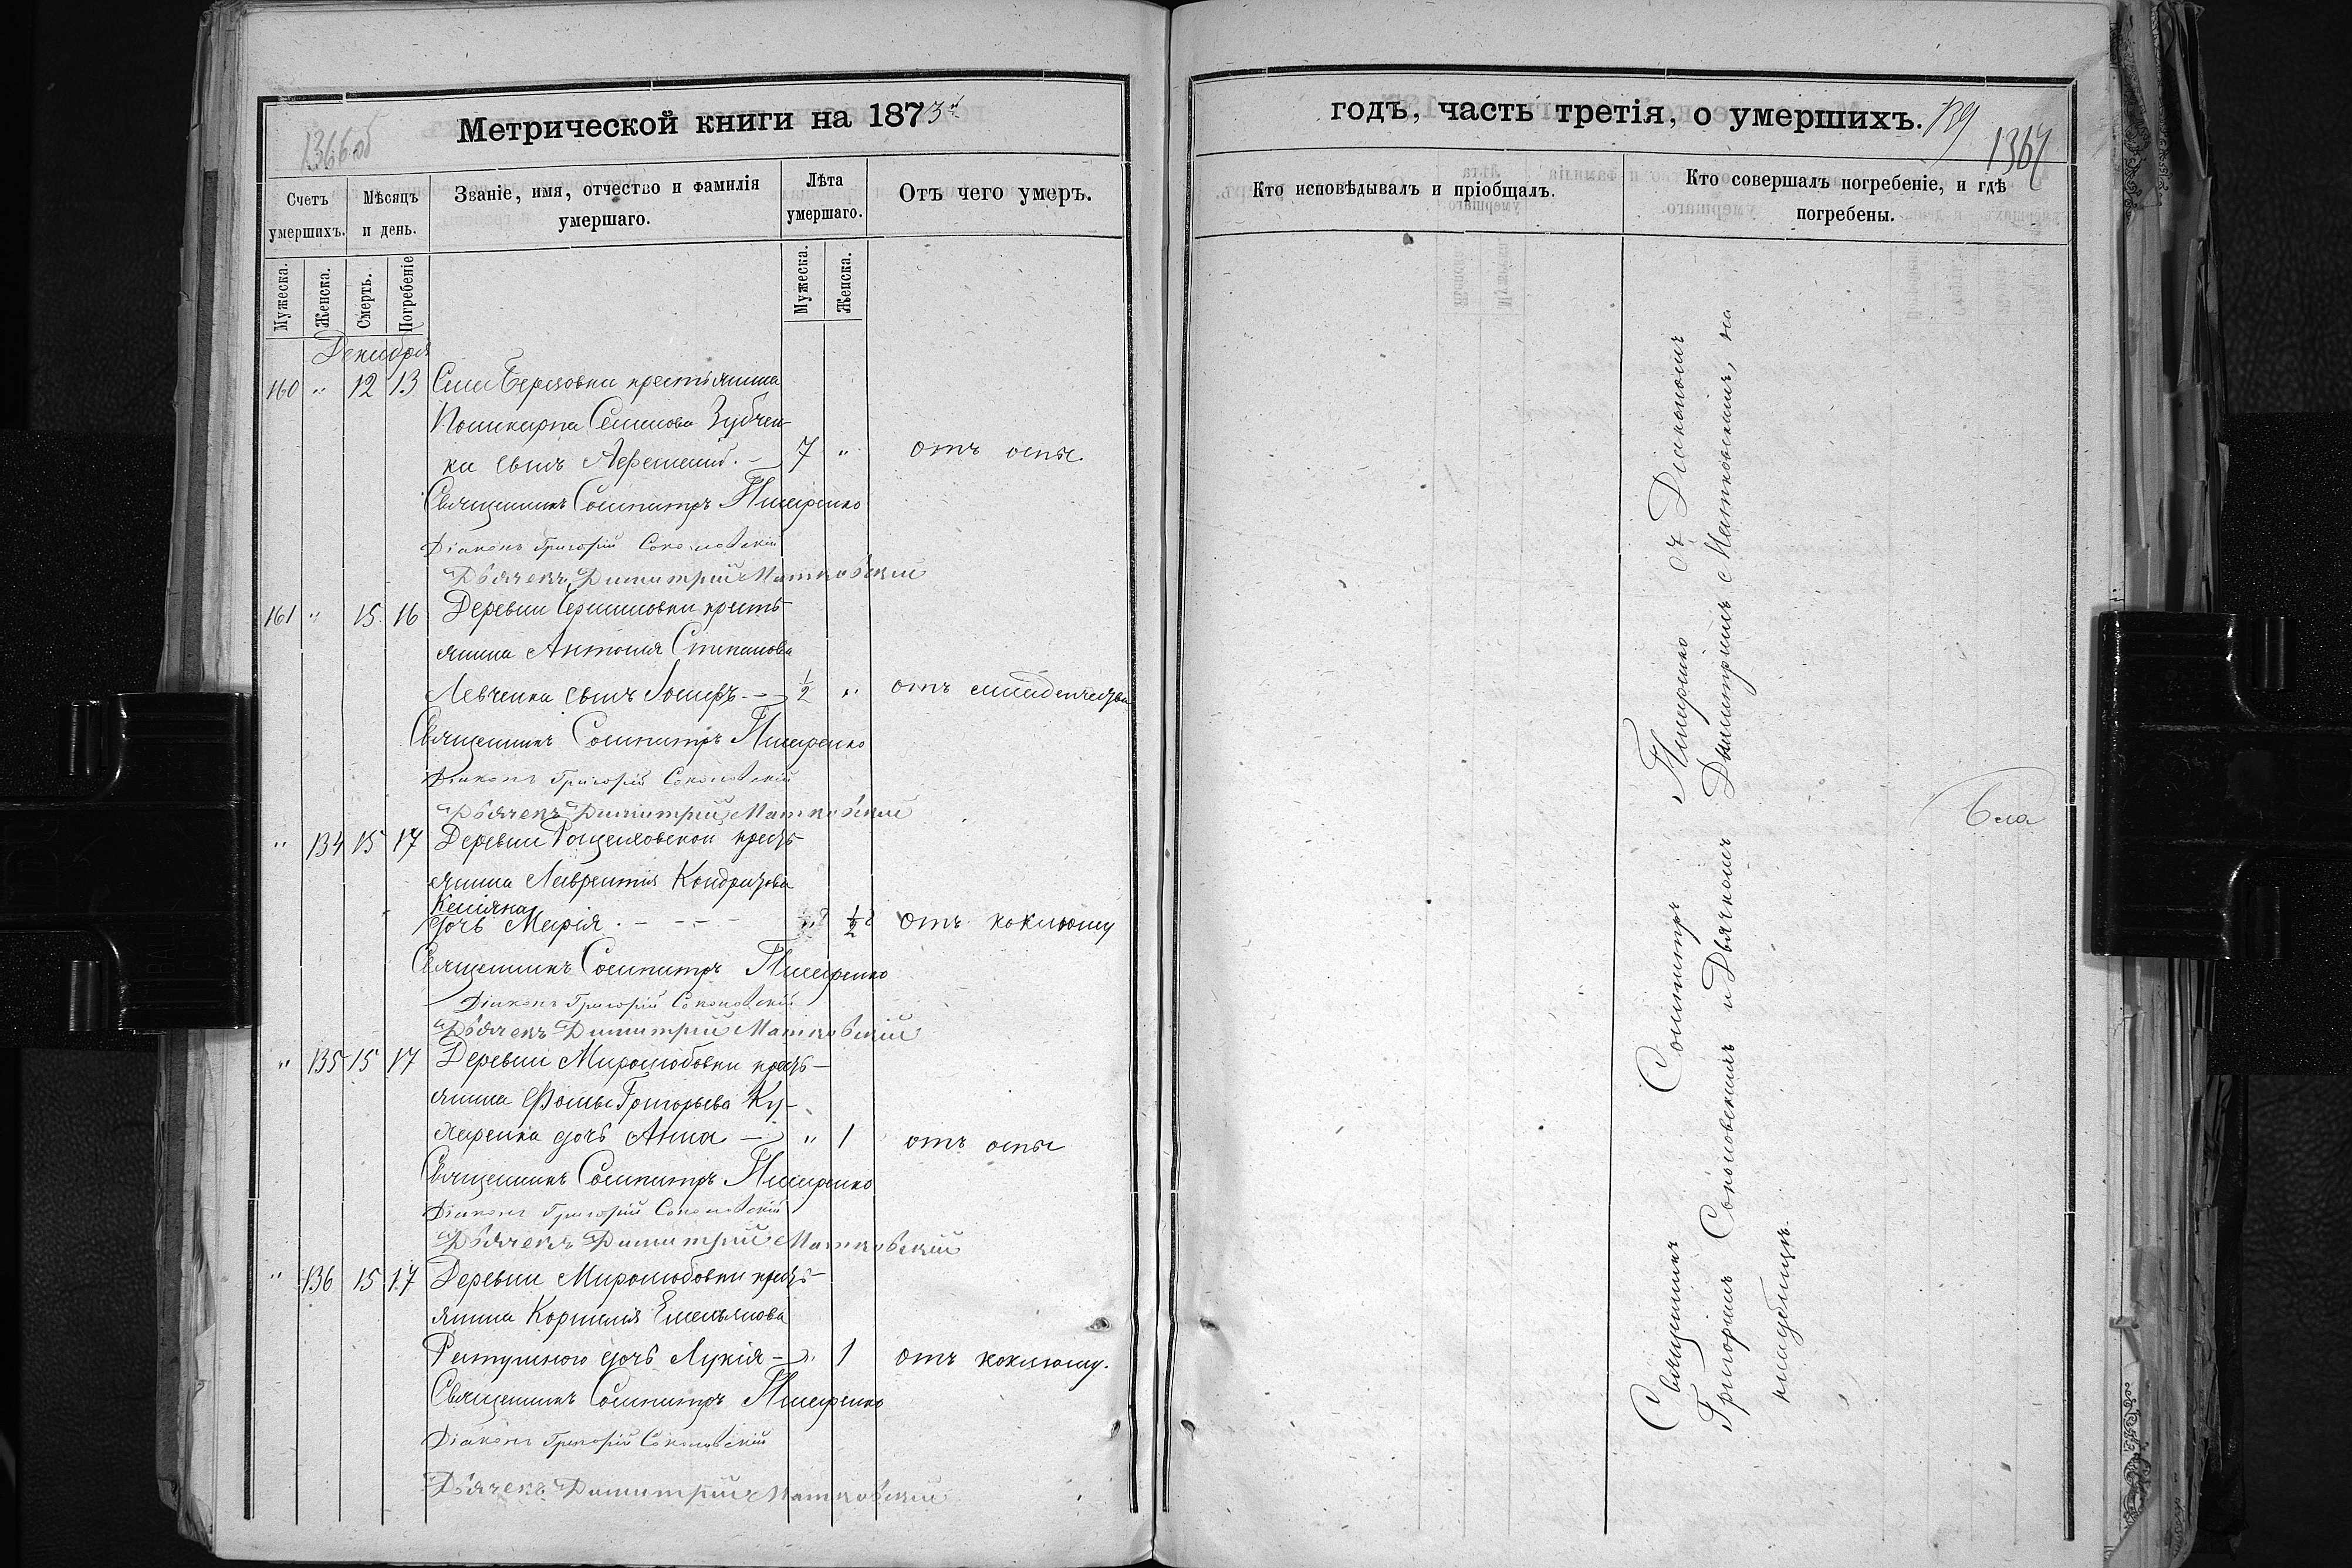 1366об
Метрической книги на 1873й
Счетъ умершихъ.
Мѣсяцъ и день.
Званіе, имя, отчество и фамилія умершаго.
Лѣта умершаго.
Отъ чего умеръ.
Мужеска.
Женска.
Смерть.
Погребеніе
Мужеска.
Женска.
Декабря
160 " 12 13 Села Березовки крестьянина
Поликарпа Семенова Зубчен-
ка сынъ 7 " отъ оспы.
Священникъ Сосипатръ Писаренко
Діаконъ Григорій Соколовскій
Дьячекъ Димитрій Матковскій
161 " 15 16 Деревни кресть-
янина Антонія Степанова
Левченка сынъ 1/2 " отъ младенчества
Священникъ Сосипатръ Писаренко
Діаконъ Григорій Соколовскій
Дьячекъ Димитрій Матковскій
" 134 15 17 Деревни кресть-
янина Лаврентія Кондратова
дочь Марія " 1/2 отъ коклюшу
Священникъ Сосипатръ Писаренко
Діаконъ Григорій Соколовскій
Дьячекъ Димитрій Матковскій
" 135 15 17 Деревни Миролюбовки кресть-
янина Фомы Григорьева Ку-
харенка дочь Анна " 1 отъ оспы
Священникъ Сосипатръ Писаренко
Діаконъ Григорій Соколовскій
Дьячекъ Димитрій Матковскій
" 136 15 17 Деревни Миролюбовки кресть-
янина Корнилія Емельянова
дочь Лукія " 1 отъ коклюшу.
Священникъ Сосипатръ Писаренко
Діаконъ Григорій Соколовскій
Дьячекъ Димитрій Матковскій
годъ, часть третія, о умершихъ.
139
1367
Кто исповѣдывалъ и пріобщалъ.
Кто совершалъ погребеніе, и гдѣ погребены.
Священникъ Сосипатръ Писаренко съ Діакономъ
Григоріемъ Соколовскимъ и Дьячкомъ Димитріемъ Матковскимъ, на
кладбищѣ.